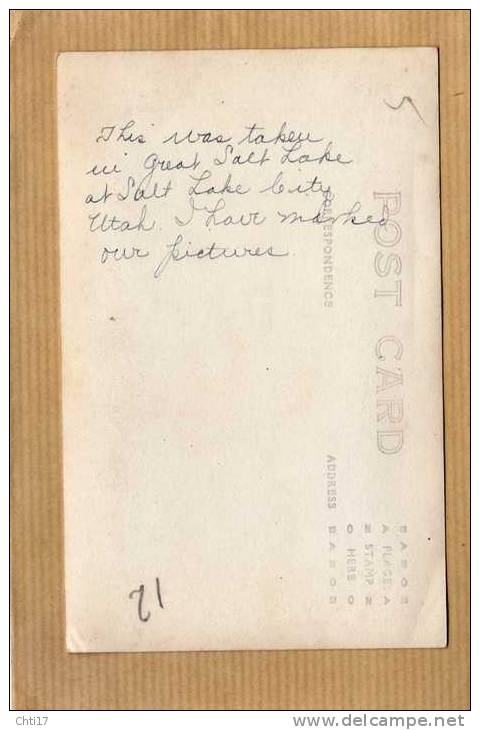 This was taken
in Great Salt Lake
at Salt Lake City
Utah. I have marked
our pictures.
5
POST CARD
CORRESPONDENCE
ADDRESS
PLACE
STAMP
HERE
12
Chti17
www.delcampe.net